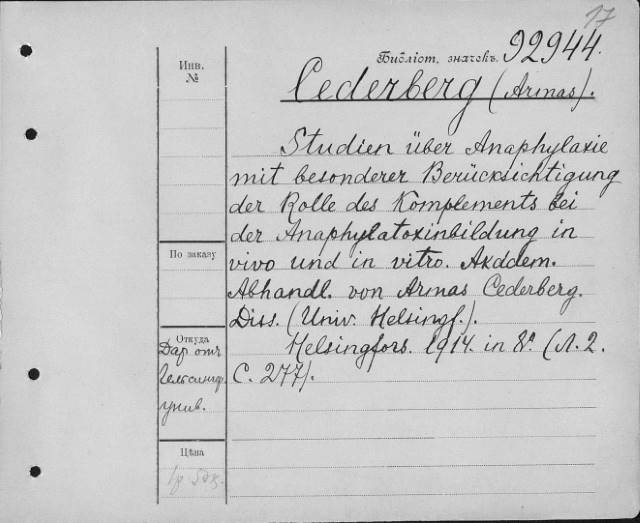 17
Библіот. значекъ 92944.
Инв.
№
Cederberg (Armas).
Studien über Anaphylaxie
mit besonderer Berücksichtigung
der Rolle des Komplements bei
der Anaphylatoxinbildung in
По заказу
vivo und in vitro. Akadem.
Abhandl. von Armas Cederberg.
Diss. (Univ. Helsingf.).
Откуда
Даръ отъ
Гельсингф.
унив.
Helsingfors. 1914. in 8°. (Л. 2.
С. 277).
Цѣна